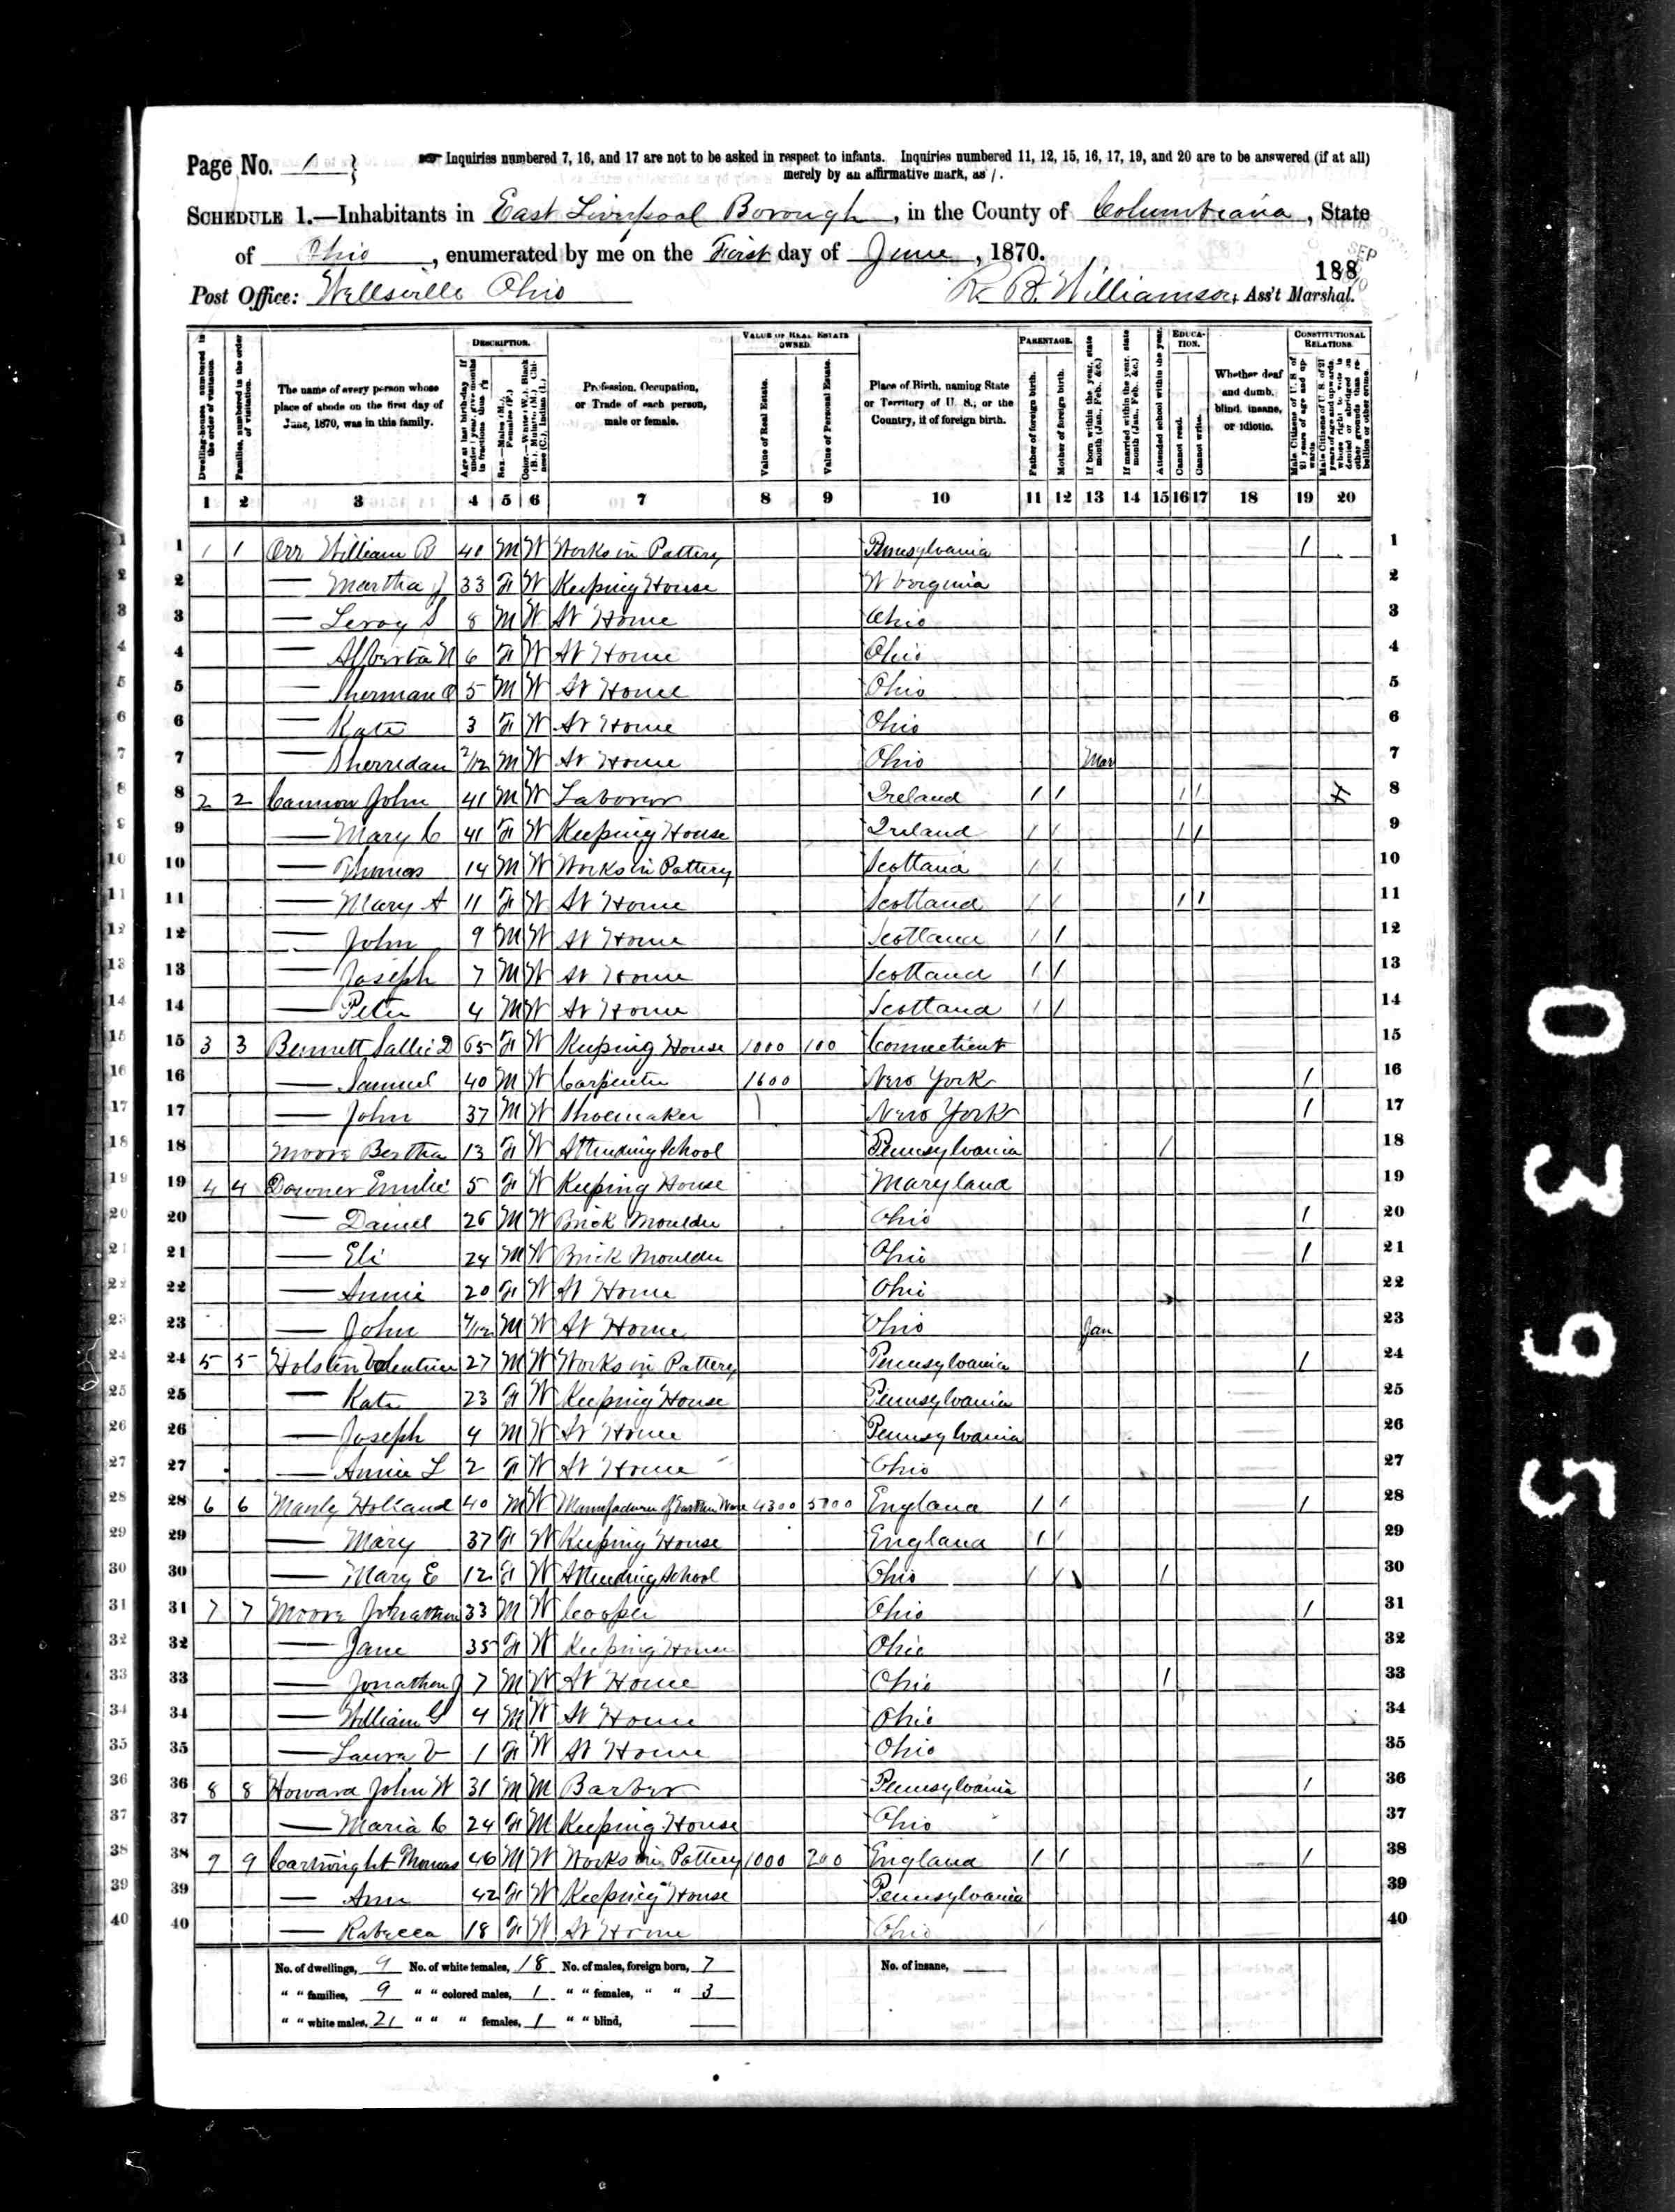 Page No. 1 }
Inquiries numbered 7, 16, and 17 are not to be asked in respect to infants. Inquiries numbered 11, 12, 15, 16, 17, 19, and 20 are to be answered (if at all)
merely by an affirmative mark, as /.
SCHEDULE 1.—Inhabitants in East Liverpool Borough, in the County of Columbiana, State
of Ohio, enumerated by me on the First day of June, 1870.
188
Post Office: Wellsville Ohio R. B. Williamson, Ass't Marshal.
Dwelling-houses, numbered in the order of visitation.
Families, numbered in the order of visitation.
The name of every person whose place of abode on the first day of June, 1870, was in this family.
DESCRIPTION.
Age at last birth-day. If under 1 year, give months in fractions, thus 3/12
Sex.—Males (M.), Females (F.)
Color.—White (W.), Black (B.), Mulatto (M.), Chinese (C.), Indian (I.)
Profession, Occupation, or Trade of each person, male or female.
VALUE OF REAL ESTATE OWNED.
Value of Real Estate.
Value of Personal Estate.
Place of Birth, naming State or Territory of U. S.; or the Country, if of foreign birth.
PARENTAGE.
Father of foreign birth.
Mother of foreign birth.
If born within the year, state month (Jan., Feb., &c.)
If married within the year, state month (Jan., Feb., &c.)
Attended school within the year.
EDUCATION.
Cannot read.
Cannot write.
Whether deaf and dumb, blind, insane, or idiotic.
CONSTITUTIONAL RELATIONS.
Male Citizens of U. S. of 21 years of age and upwards.
Male Citizens of U. S. of 21 years of age and upwards, whose right to vote is denied or abridged on other grounds than rebellion or other crime.
1 2 3 4 5 6 7 8 9 10 11 12 13 14 15 16 17 18 19 20
1 1 1 Orr William B 40 M W Works in Pottery Pennsylvania 1 1
2 — Martha J 33 F W Keeping House W Verginia 2
3 — Leroy S 8 M W At Home Ohio 3
4 — Alberta N 6 F W At Home Ohio 4
5 — Sherman O 5 M W At Home Ohio 5
6 — Kate 3 F W At Home Ohio 6
7 — Sherredan 2/12 M W At Home Ohio Mar 7
8 2 2 Cannon John 41 M W Laborer Ireland 1 1 1 1 8
9 — Mary C 41 F W Keeping House Ireland 1 1 1 1 9
10 — Thomas 14 M W Works in Pottery Scotland 1 1 10
11 — Mary A 11 F W At Home Scotland 1 1 1 1 11
12 — John 9 M W At Home Scotland 1 1 12
13 — Joseph 7 M W At Home Scotland 1 1 13
14 — Peter 4 M W At Home Scotland 1 1 14
15 3 3 Bennett Sallie D 65 F W Keeping House 1000 100 Connecticut 15
16 — Samuel 40 M W Carpenter 1600 New York 1 16
17 — John 37 M W Shoemaker New York 1 17
18 Moore Bertha 13 F W Attending School Pennsylvania 1 18
19 4 4 Downer Emilie 5 F W Keeping House Maryland 19
20 — Daniel 26 M W Brick Moulder Ohio 1 20
21 — Eli 24 M W Brick Moulder Ohio 1 21
22 — Annie 20 F W At Home Ohio 22
23 — John M W At Home Ohio Jan 23
24 5 5 Holsten Valentine 27 M W Works in Pottery Pennsylvania 1 24
25 — Kate 23 F W Keeping House Pennsylvania 25
26 — Joseph 4 M W At Home Pennsylvania 26
27 — Annie L 2 F W At Home Ohio 27
28 6 6 Manly Holland 40 M W Manufacturer of Earthen Ware 4300 5000 England 1 1 1 28
29 — Mary 37 F W Keeping House England 1 1 29
30 — Mary E 12 F W Attending School Ohio 1 1 1 30
31 7 7 Moore Johnathan 33 M W Cooper Ohio 1 31
32 — Jane 35 F W Keeping House Ohio 32
33 — Jonathan J 7 M W At Home Ohio 1 33
34 — William G 4 M W At Home Ohio 34
35 — Laura V 1 F W At Home Ohio 35
36 8 8 Howard John W 31 M M Barber Pennsylvania 1 36
37 — Maria C 24 F M Keeping House Ohio 37
38 9 9 Cartwright Thomas 46 M W Works in Pottery 1000 200 England 1 1 1 38
39 — Ann 42 F W Keeping House Pennsylvania 39
40 — Rebecca 18 F W At Home Ohio 1 40
No. of dwellings, 9 No. of white females, 18 No. of males, foreign born, 7 No. of insane,
" " families, 9 " " colored males, 1 " " females, " " 3
" " white males, 21 " " " females, 1 " " blind,
0395